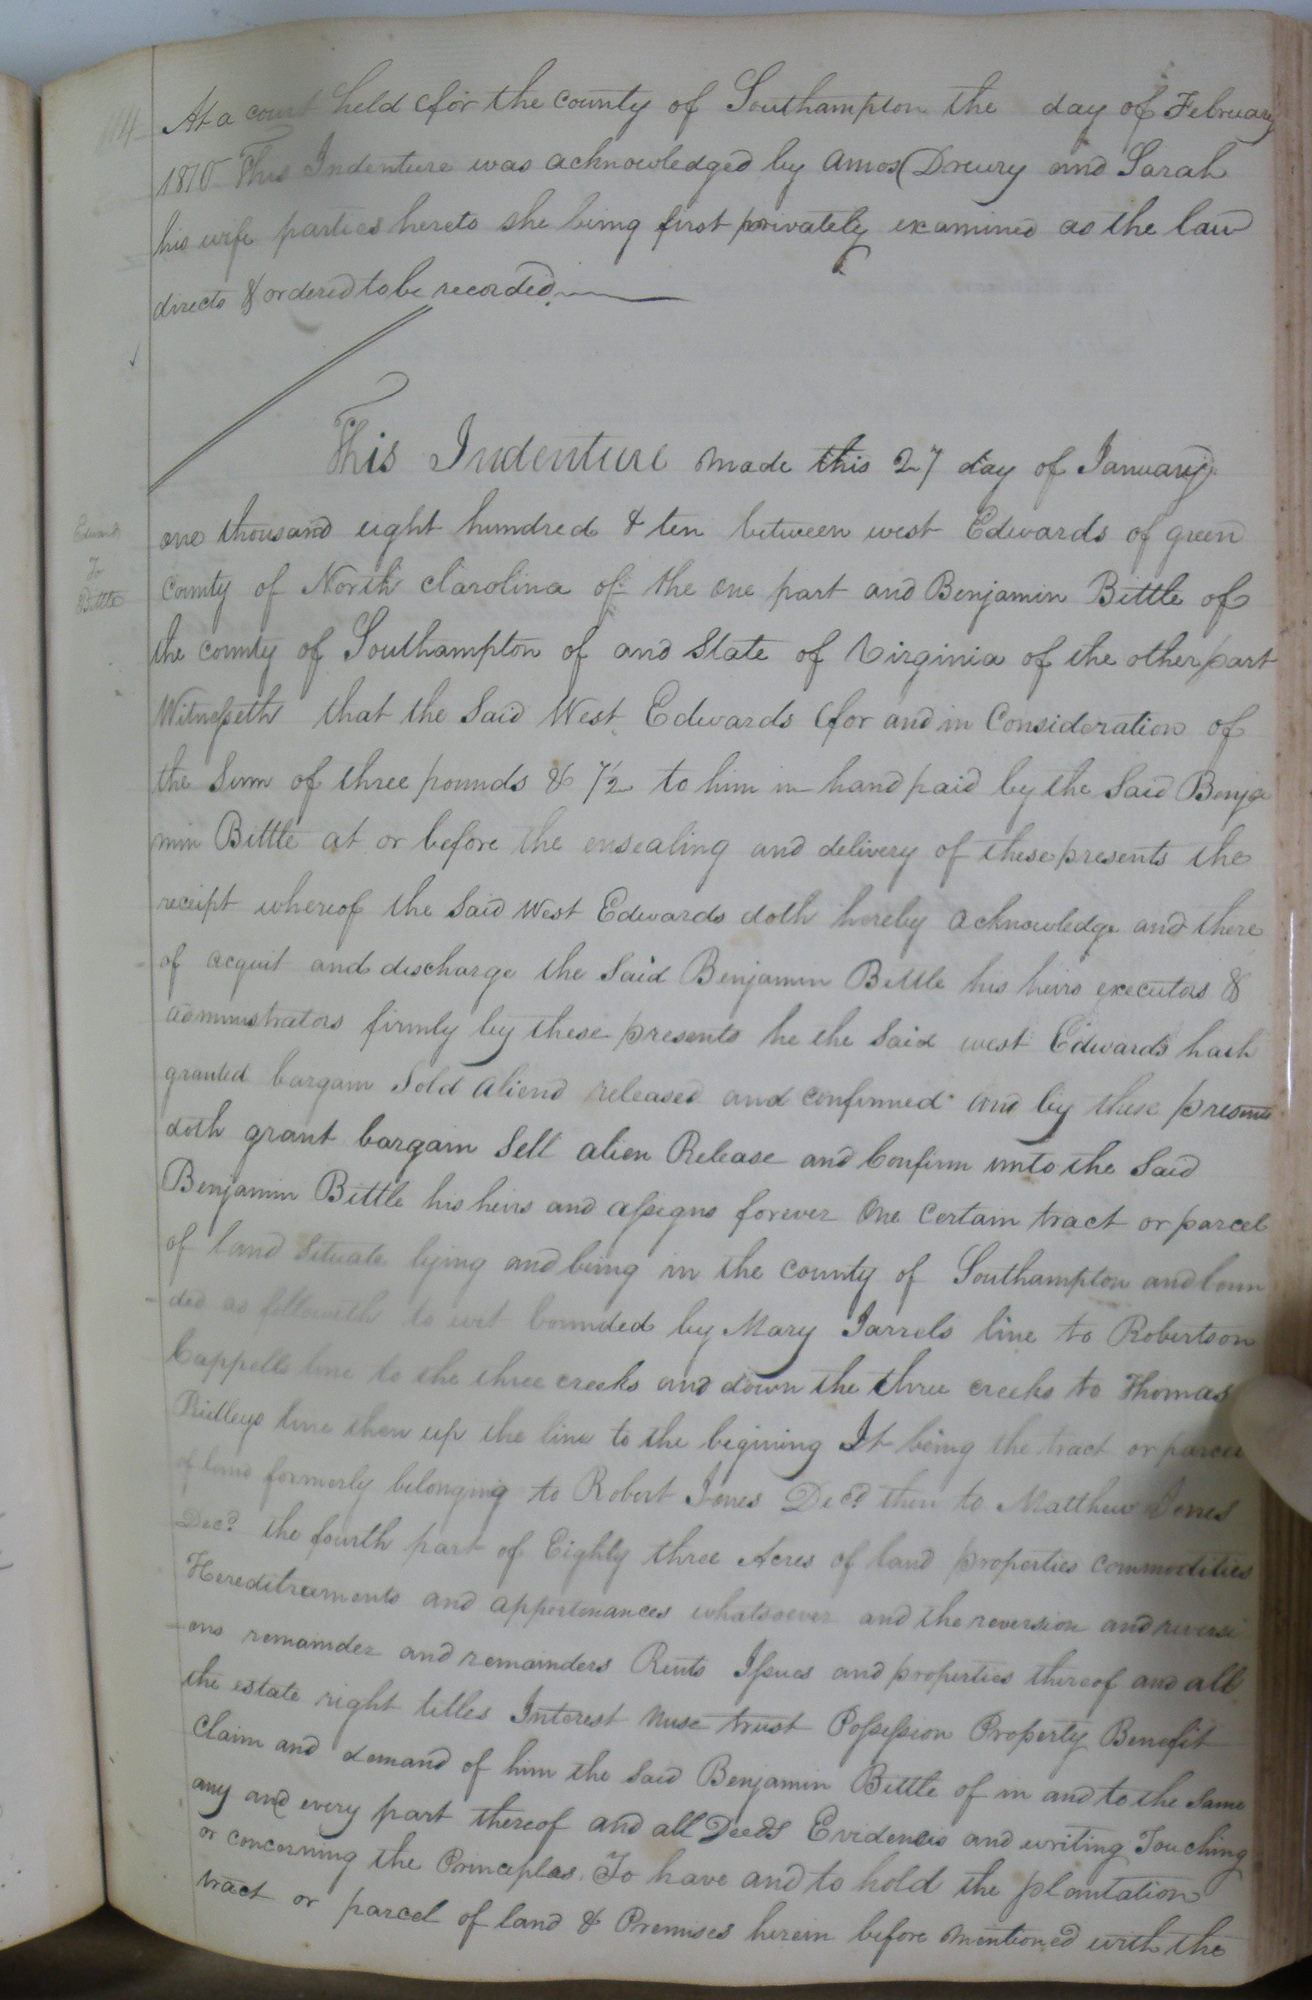 114
At a court held for the county of Southampton the day of February
1810 This Indenture was acknowledged by Amos Drewry and Sarah
his wife parties hereto she being first privately examined as the law
directs & ordered to be recorded
This Indenture made this 27 day of January
one thousand eight hundred & ten between west Edwards of green
Edwards
To
Bittle
County of North Carolina of the one part and Benjamin Bittle of
the county of Southampton of and State of Virginia of the other part
Witnesseth that the Said West Edwards for and in Consideration of
the Sum of three pounds & 7/2 to him in hand paid by the Said Benja
min Bittle at or before the ensealing and delivery of these presents the
receipt whereof the Said West Edwards doth hereby acknowledge and there
of acquit and discharge the Said Benjamin Bittle his heirs executors &
administrators firmly by these presents he the Said west Edwards hath
granted bargain Sold aliend released and confirmed and by these presents
doth grant bargain Sell alien Release and Confirm unto the Said
Benjamin Bittle his heirs and assigns forever One certain tract or parcel
of land Situate lying and being in the county of Southampton and boun
ded as followeth to wit bounded by Mary Jarrels line to Robertson
Cappells line to the three creeks and down the three creeks to Thomas
Ridleys line then up the line to the begining It being the tract or parcel
of land formerly belonging to Robert Jones Decd then to Matthew Jones
Decd the fourth part of Eighty three Acres of land properties commodities
Hereditraments and appertenances whatsoever and the reversion and reversi
ons remainder and remainders Rents Issues and properties thereof and all
the estate right titles Interest nuse trust Possession Property Benefit
Claim and demand of him the Said Benjamin Bittle of in and to the Same
any and every part thereof and all Deeds Evidences and writing Touching
or concerning the Princeples. To have and to hold the plantation
tract or parcel of land & Premises herein before mentioned with the